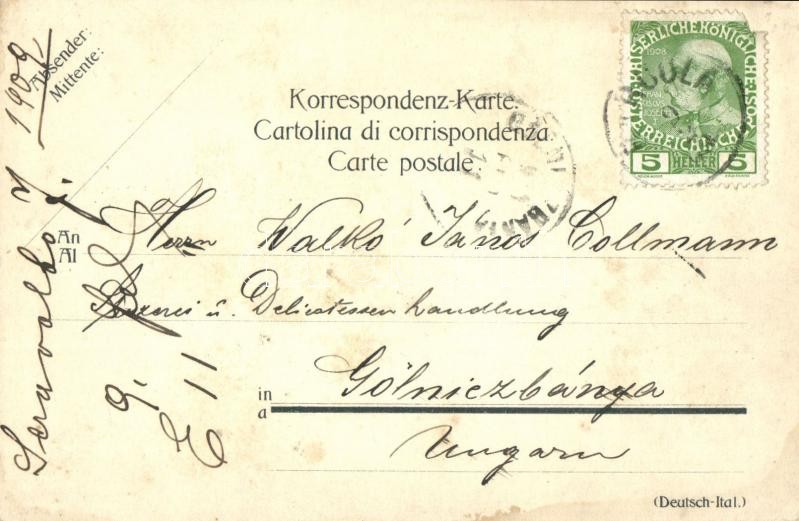 Absender:
Mittente:
Korrespondenz-Karte.
Cartolina di corrispondenza
Carte postale
KAISERLICHE KÖNIGLICHE ÖSTERREICHISCHE POST
1908
5 HELLER 5
An Herrn Walkó János Collmann
Al
u. Delicatessen handlung
in Gölniczbánya
a
Ungarn
(Deutsch-Ital.)
1909
9. 11